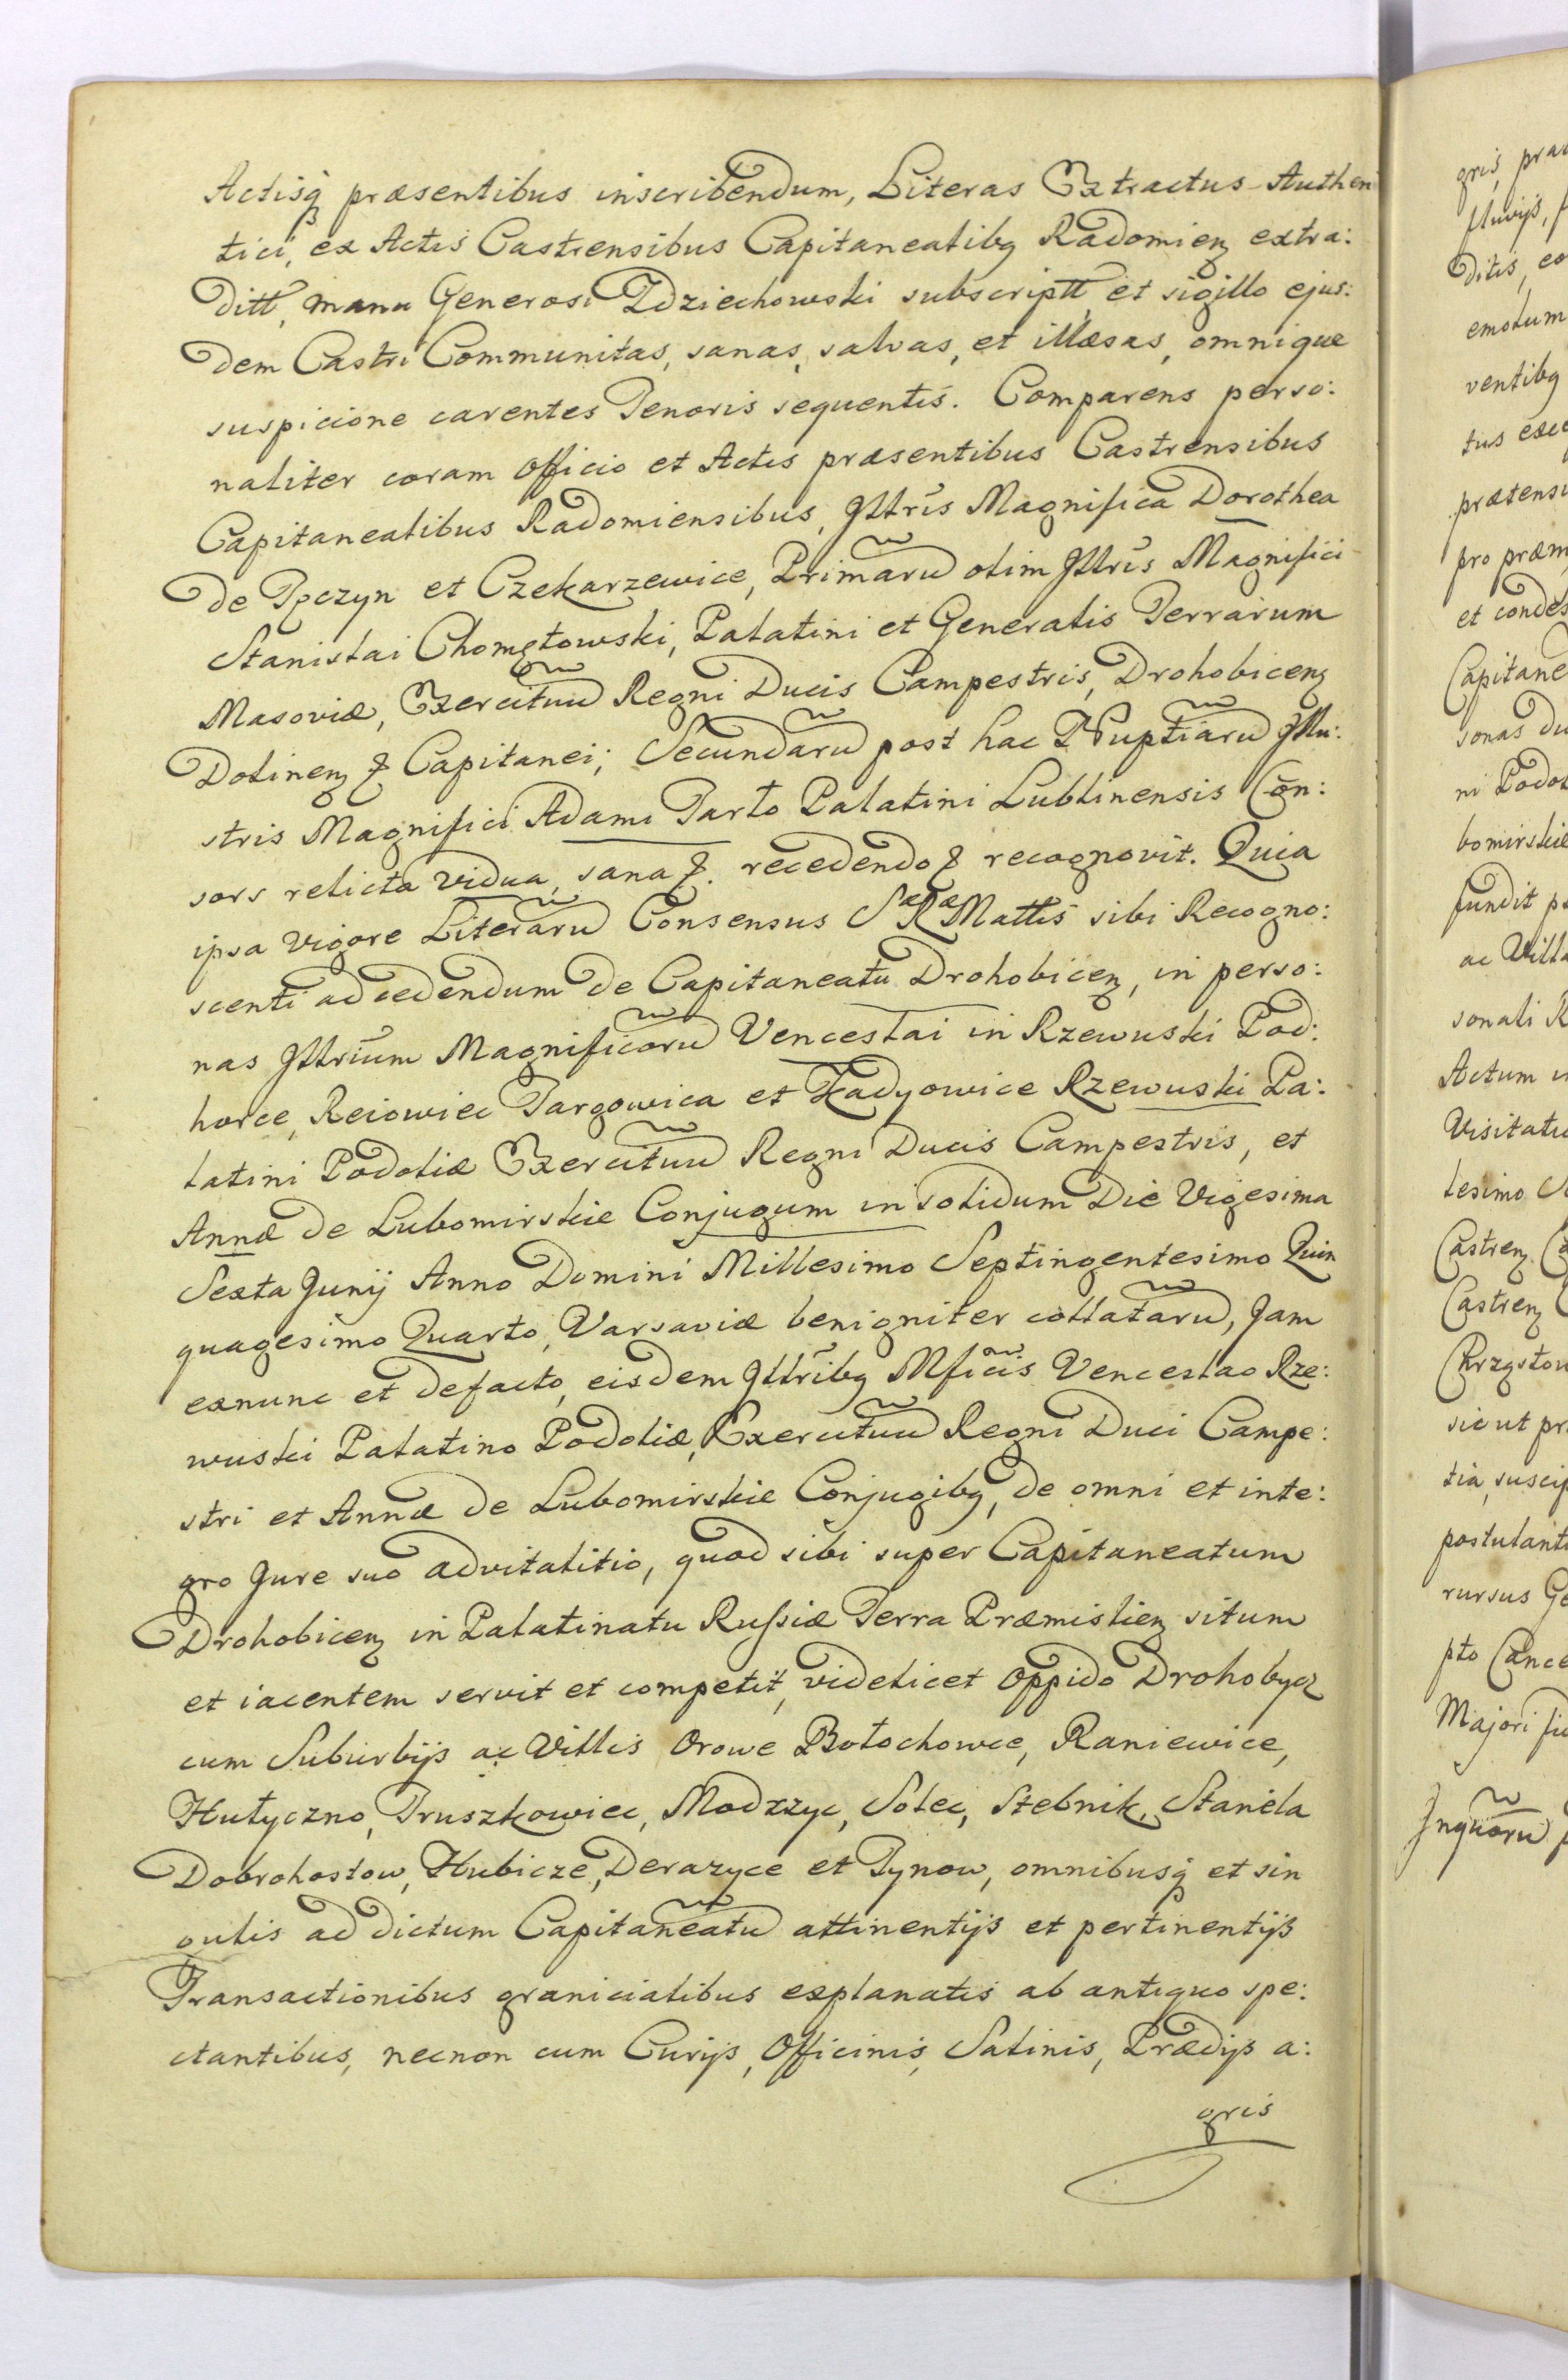 Actisq præsentibus inscribendum, Literas Extractus Authen
tici, ex Actis Castrensibus Capitaneatibq Radomienȝ extra:
ditt, manu Generosi Zdziechowski subscriptt et sigillo ejus:
dem Castri Communitas, sanas, salvas, et illæsas, omnique
suspicione carentes Tenoris sequentis. Comparens perso:
naliter coram Officio et Actis præsentibus Castrensibus
Capitanealibus Radomiensibus, Jllris Magnifica Dorothea
de Tęczyn et Czekarzewice, Primarū olim Jllris Magnifici
Stanislai Chomętowski, Palatini et Generalis Terrarum
Masoviæ, Exercituū Regni Ducis Campestris, Drohobicenȝ
Dolinenȝ & Capitanei; Secundarū post hac Nuptiarū Jllu:
stris Magnifici Adami Tarło Palatini Lublinensis Con:
sors relicta vidua, sana &. recedendo & recognovit. Quia
ipsa vigore Literarū Consensus SæRæMattis sibi Recogno:
scenti ad cedendum de Capitaneatu Drohobicenȝ, in perso:
nas Jllrium Magnificorū Venceslai in Rzewuski Pod:
horce, Reiowiec Targowica et Kadyowice Rzewuski Pa:
latini Podoliæ Exercituū Regni Ducis Campestris, et
Annæ de Lubomirskie Conjugum in solidum Die Vigesima
Sexta Junij Anno Domini Millesimo Septingentesimo Quin
quagesimo Quarto, Varsaviæ benigniter collatarū, Jam
exnunc et defacto, eisdem Jllribq Mficis Venceslao Rze:
wuski Palatino Podoliæ, Exercituū Regni Duci Campe:
stri et Annæ de Lubomirskie Conjugibq, de omni et inte:
gro Jure suo advitalitio, quod sibi super Capitaneatum
Drohobicenȝ in Palatinatu Russiæ Terra Præmislienȝ situm
et iacentem servit et competit, videlicet oppido Drohobycz
cum Suburbijs ac Villis Orowe Bołochowce, Raniewice,
Hutyczno, Truszkowiec, Modrzyc, Solec, Stebnik, Staniła
Dobrohostow, Hubicze, Derazyce et Tynow, omnibusq et sin
gulis ad dictum Capitaneatū attinentijs et pertinentijs
Transactionibus granicialibus explanatis ab antiquo spe:
ctantibus, necnon cum Curijs, Officinis, Salinis, Prædijs a:
gris
gris, præ
fluvijs,
ditis, co
emolum
ventibq
tus exce
prætensi
pro præm
et condes
Capitane
sonas du
ni Podol
bomirskie
fundit
ac Villa
sonali R
Actum
Visitatio
lesimo
Castrenȝ
Castrenȝ
Chrząstow
sicut pr
tia, suscip
postulanti
rursus Ge
pto Cance
Majori
Jnquorū